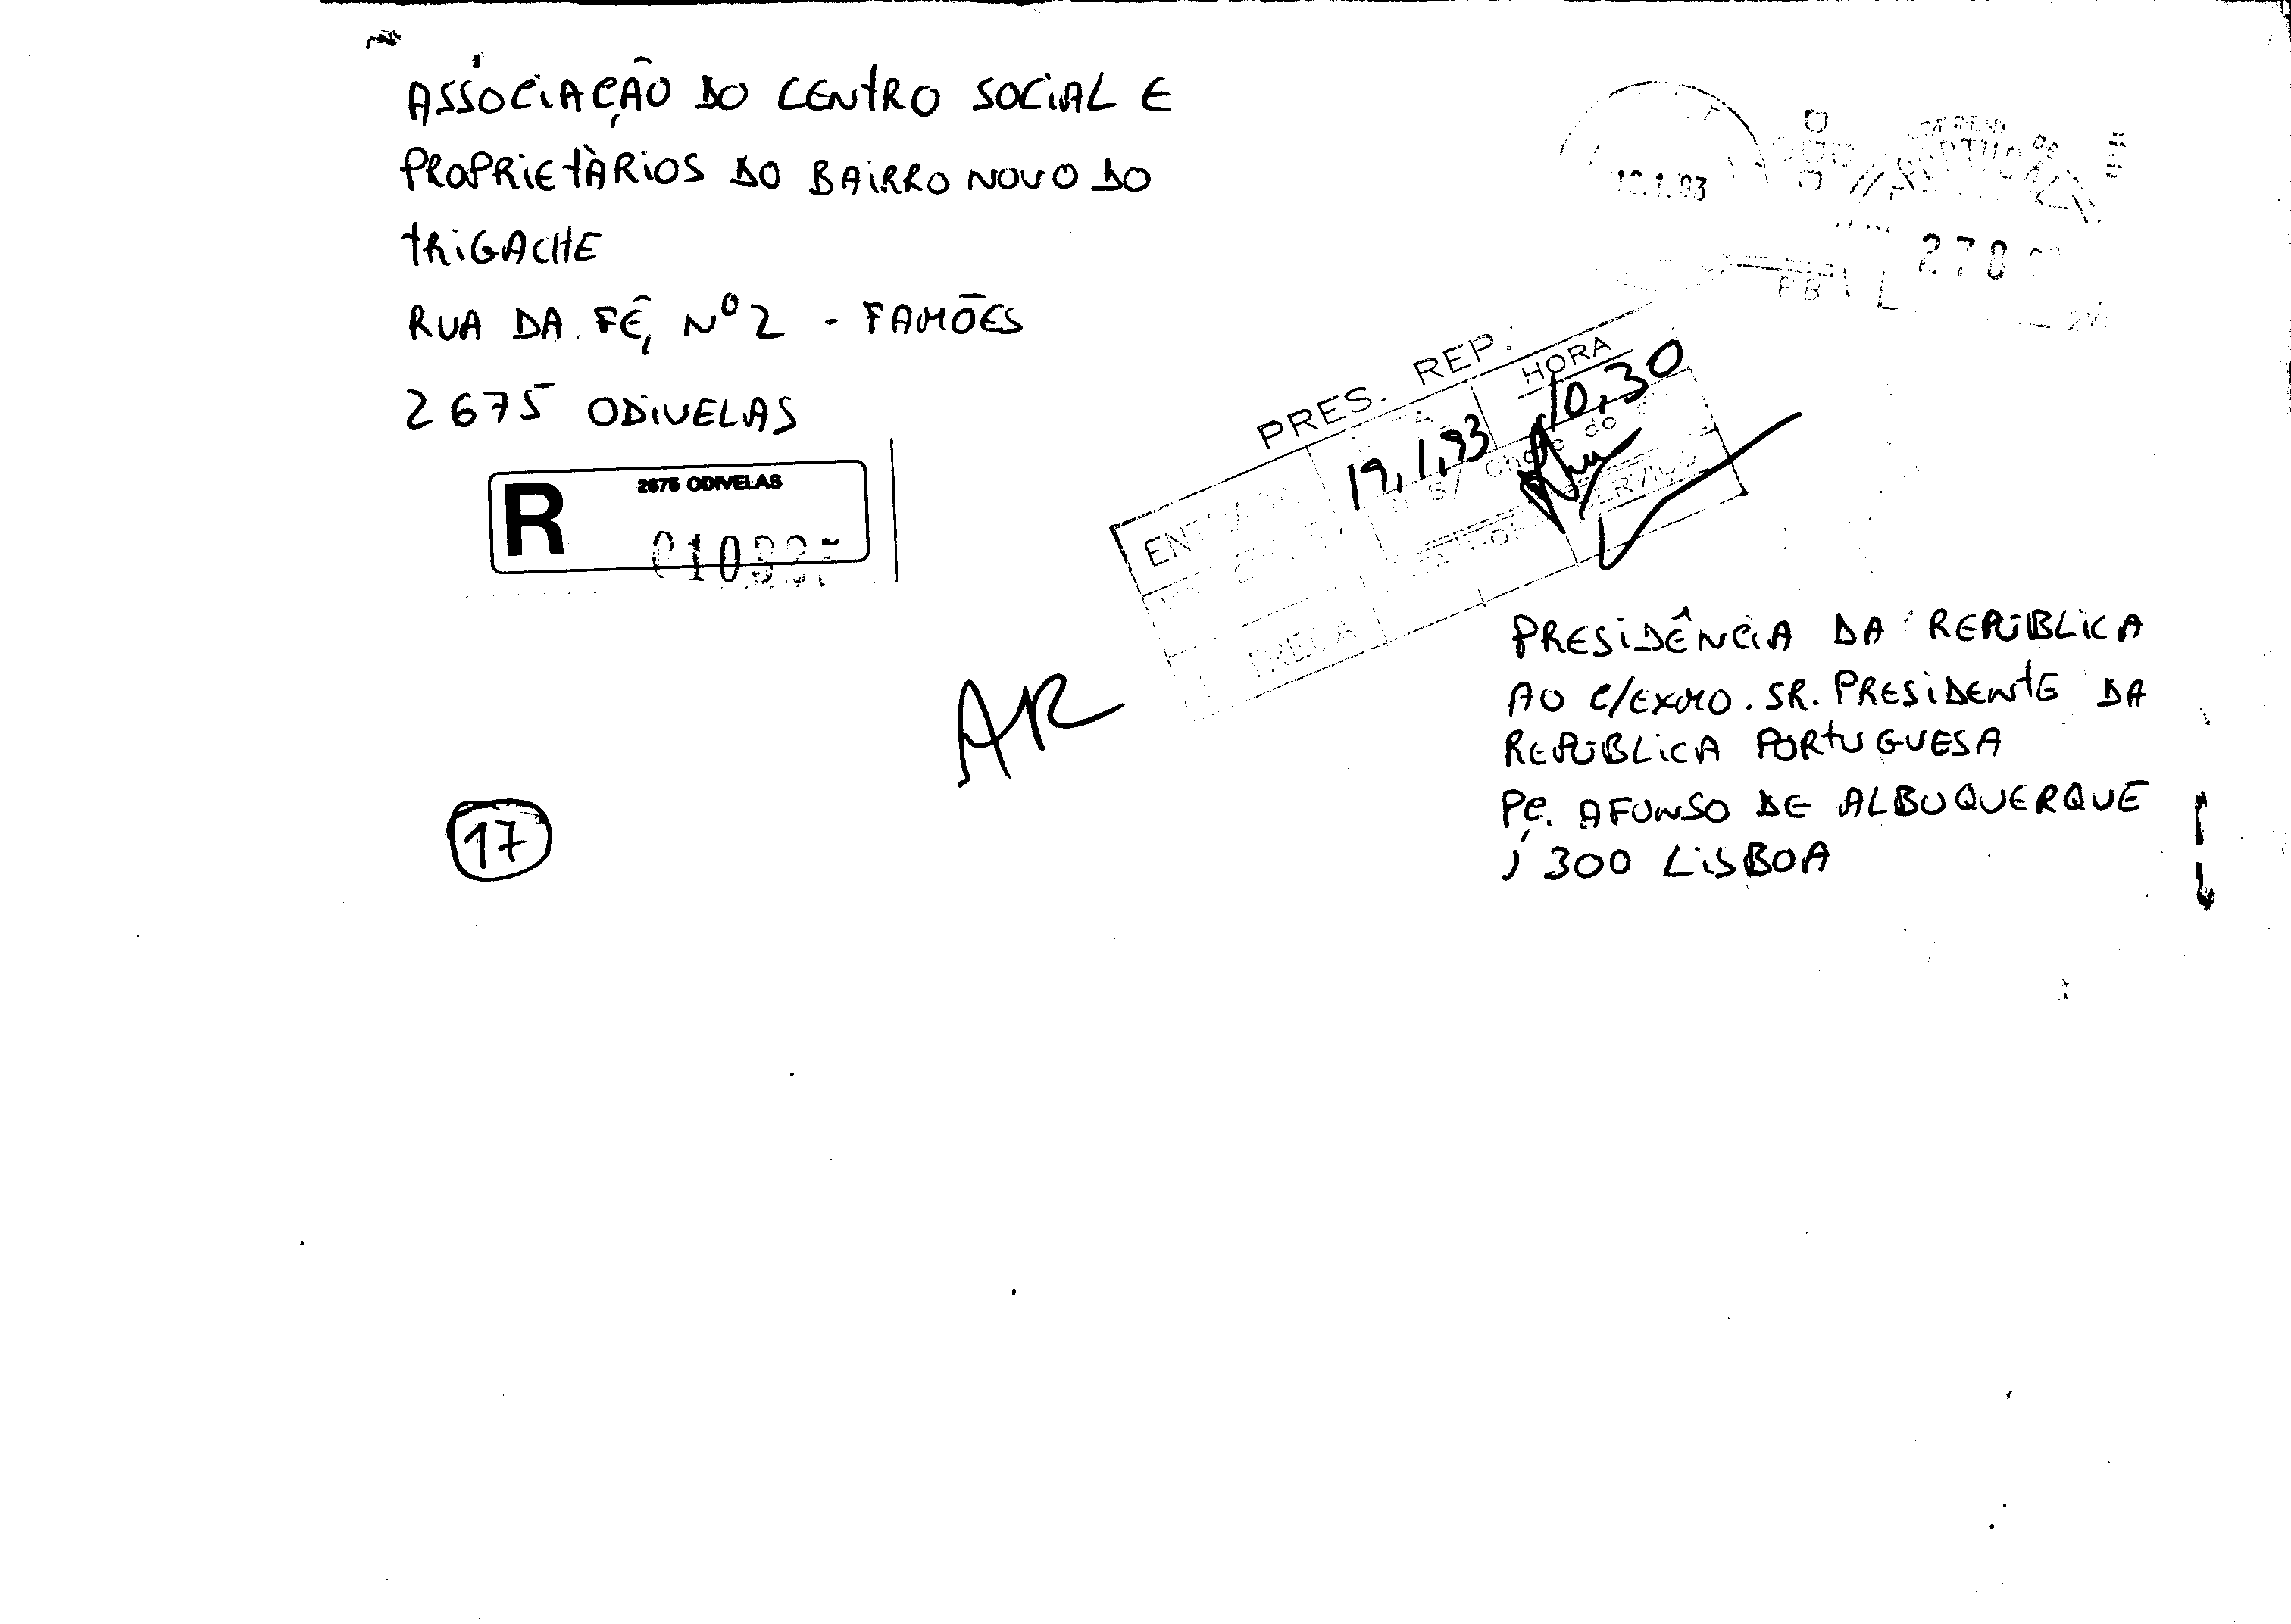 ASSOCIAÇÃO DO CENTRO SOCIAL E
PROPRIETÀRIOS DO BAIRRO NOVO DO
TRIGACHE
RUA DA FÉ, Nº 2 - FAMÕES
2675 ODIVELAS
R 2675 ODIVELAS
PRES. REP.
HORA
19,1,93 10,30
PB
278
AR
17
PRESIDÊNCIA DA REPÚBLICA
AO C/EXMO. SR. PRESIDENTE DA
REPÚBLICA PORTUGUESA
PÇ. AFONSO DE ALBUQUERQUE
1300 LISBOA